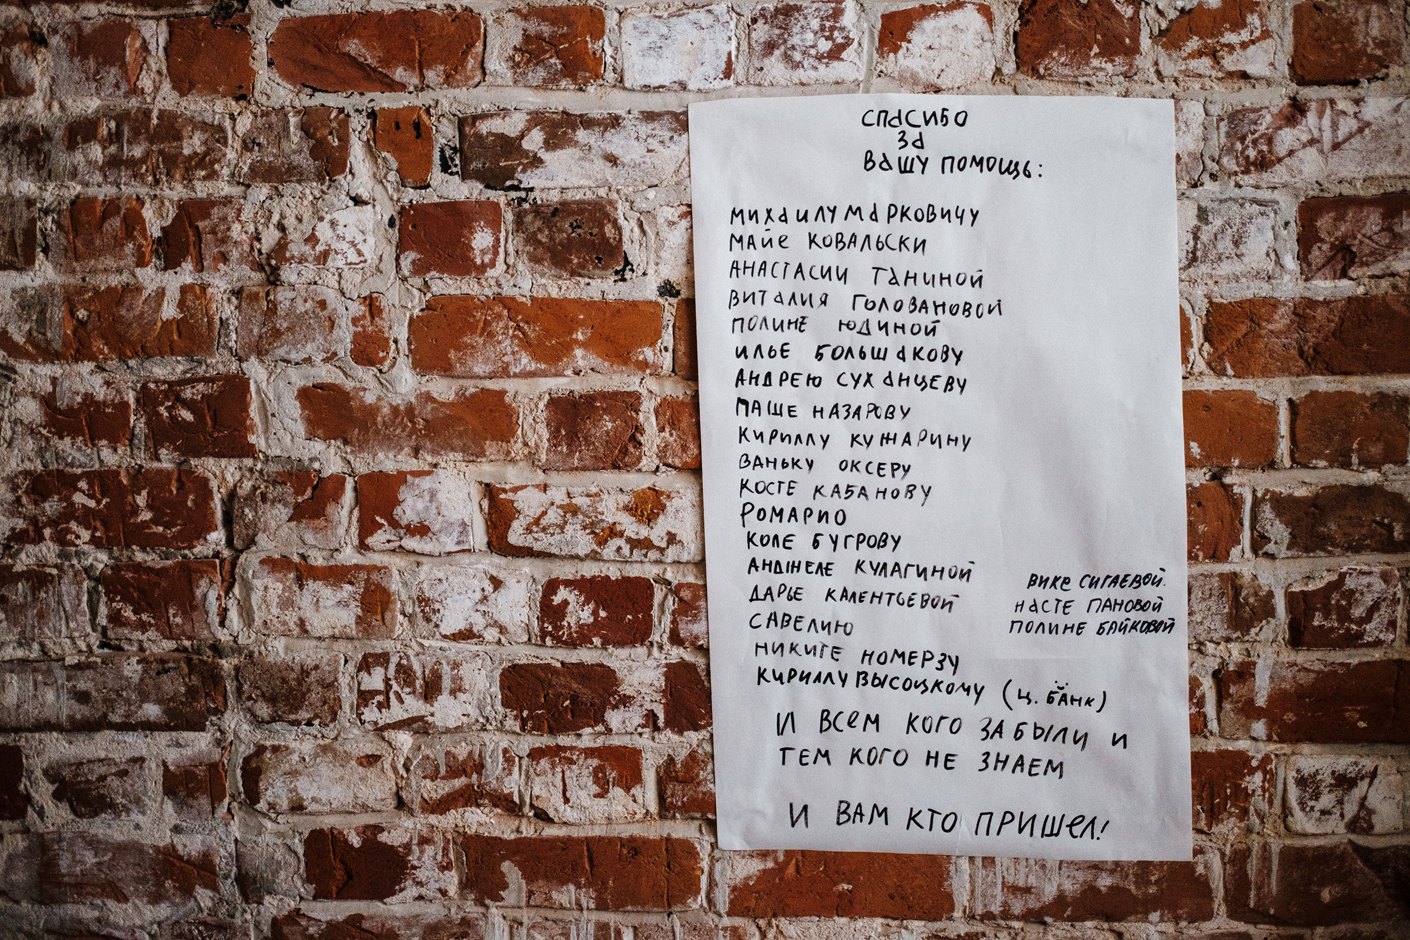 СПАСИБО
ЗА
ВАШУ ПОМОЩЬ:
МИХАИЛУ МАРКОВИЧУ
МАЙЕ КОВАЛЬСКИ
АНАСТАСИИ ТАНИНОЙ
ВИТАЛИЯ ГОЛОВАНОВОЙ
ПОЛИНЕ ЮДИНОЙ
ИЛЬЕ БОЛЬШАКОВУ
АНДРЕЮ СУХАНЦЕВУ
ПАШЕ НАЗАРОВУ
КИРИЛЛУ КУЖАРИНУ
ВАНЬКУ ОКСЕРУ
КОСТЕ КАБАНОВУ
РОМАРИО
КОЛЕ БУГРОВУ
АНДЖЕЛЕ КУЛАГИНОЙ
ДАРЬЕ КАЛЕНТЬЕВОЙ
САВЕЛИЮ
НИКИТЕ НОМЕРЗУ
КИРИЛЛУ ВЫСОЦКОМУ (Ц. БАНК)
ВИКЕ СИГАЕВОЙ.
НАСТЕ ПАНОВОЙ
ПОЛИНЕ БАЙКОВОЙ
И ВСЕМ КОГО ЗАБЫЛИ И
ТЕМ КОГО НЕ ЗНАЕМ
И ВАМ КТО ПРИШЕЛ!